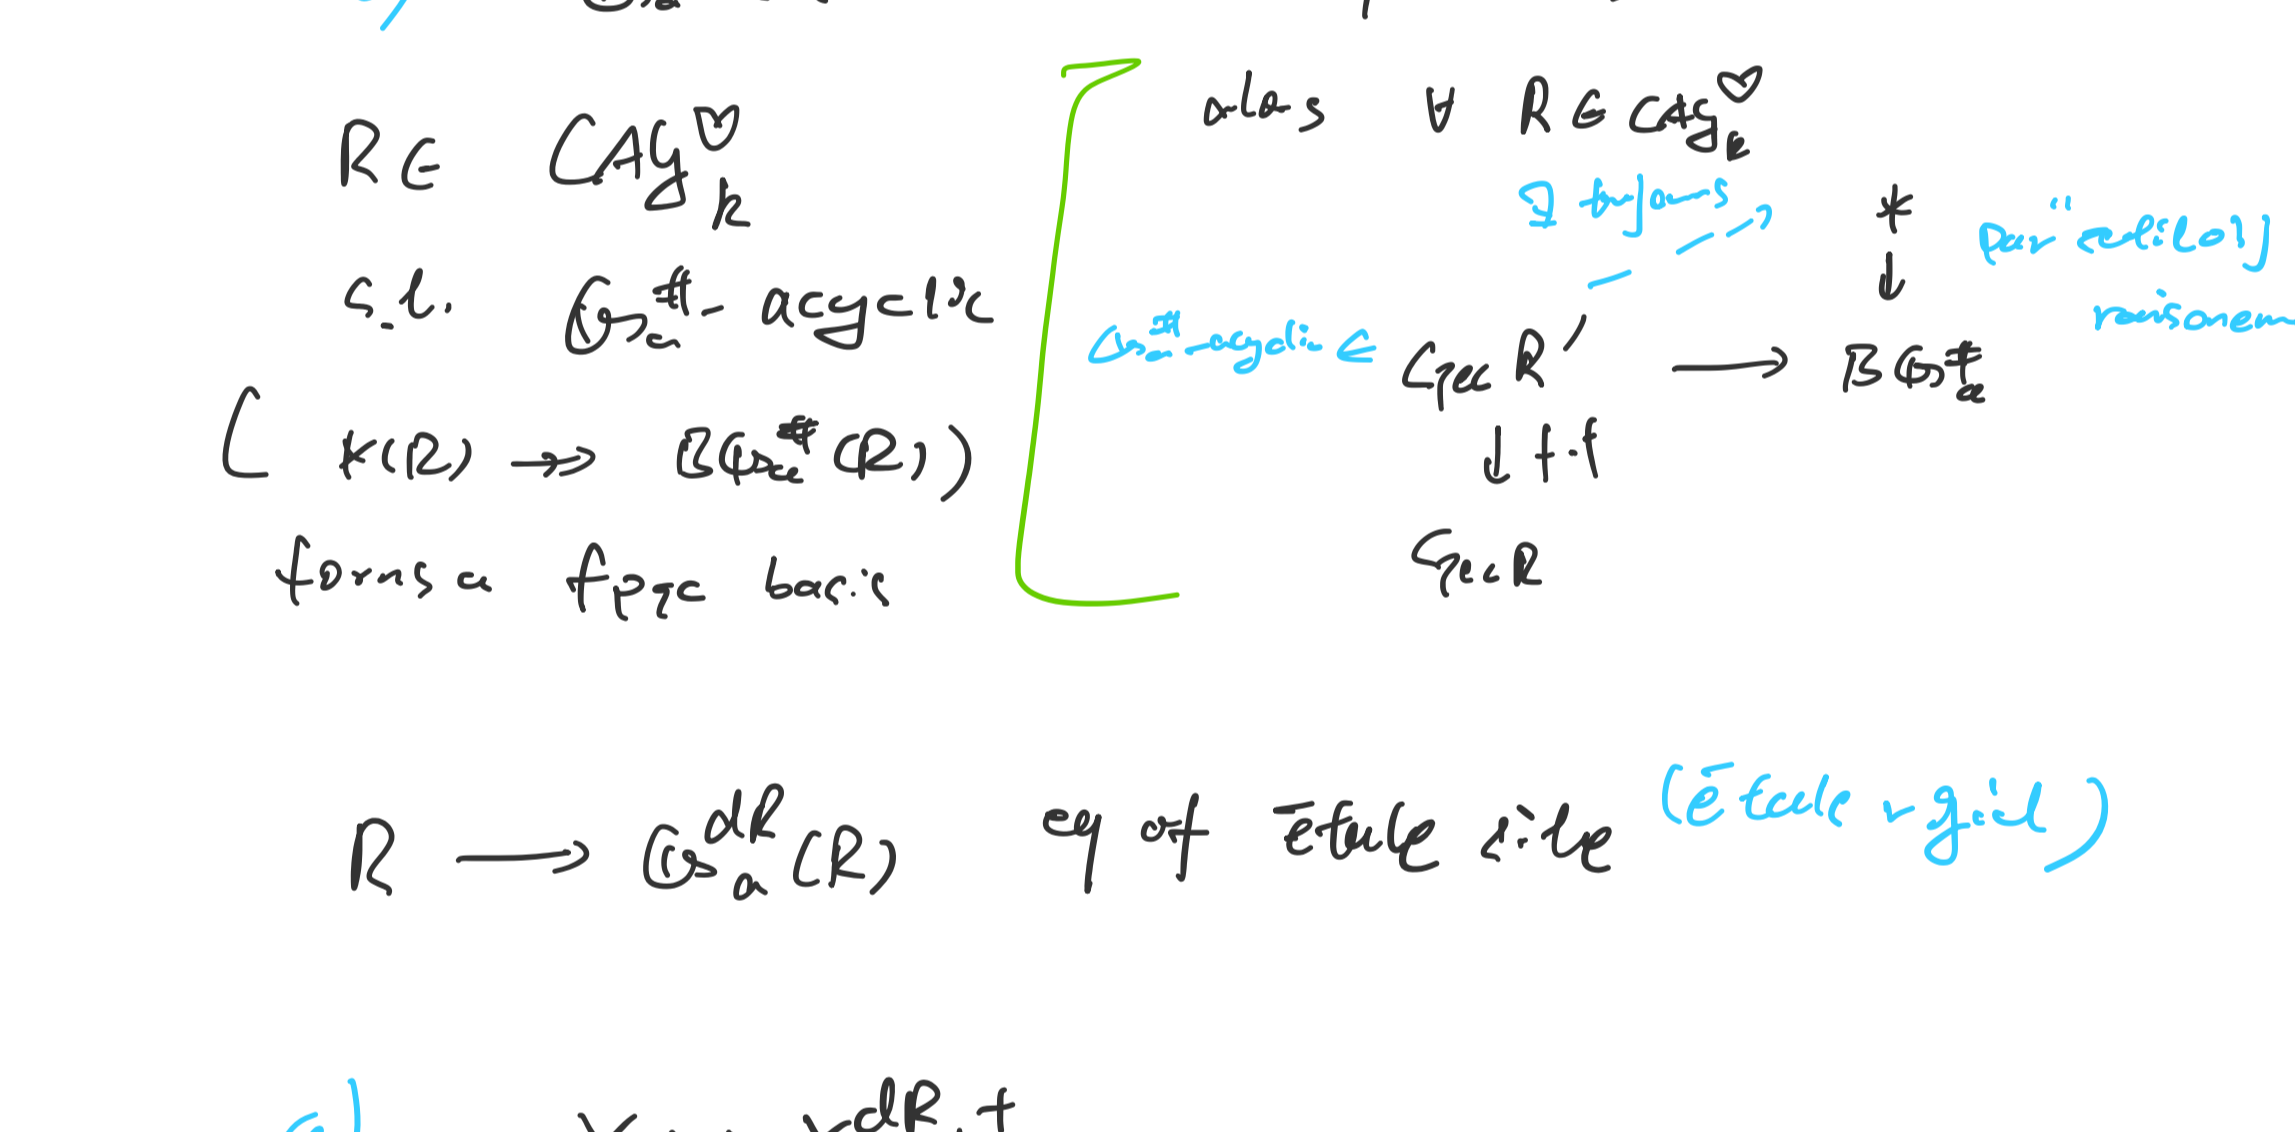 R ∈ CAlg_k^♡
s.t. G_a^# - acyclic
( *(R) ↠ BG_a^#(R) )
forms a fpqc basis
alors ∀ R ∈ CAlg_k^♡
∃ toujours,
*
↓
par "
G_a^#-acyclic ∈ Spec R' → BG_a^#
↓ f.f
Spec R
R → G_a^dR(R) eq of Étale site (Étale rigid)